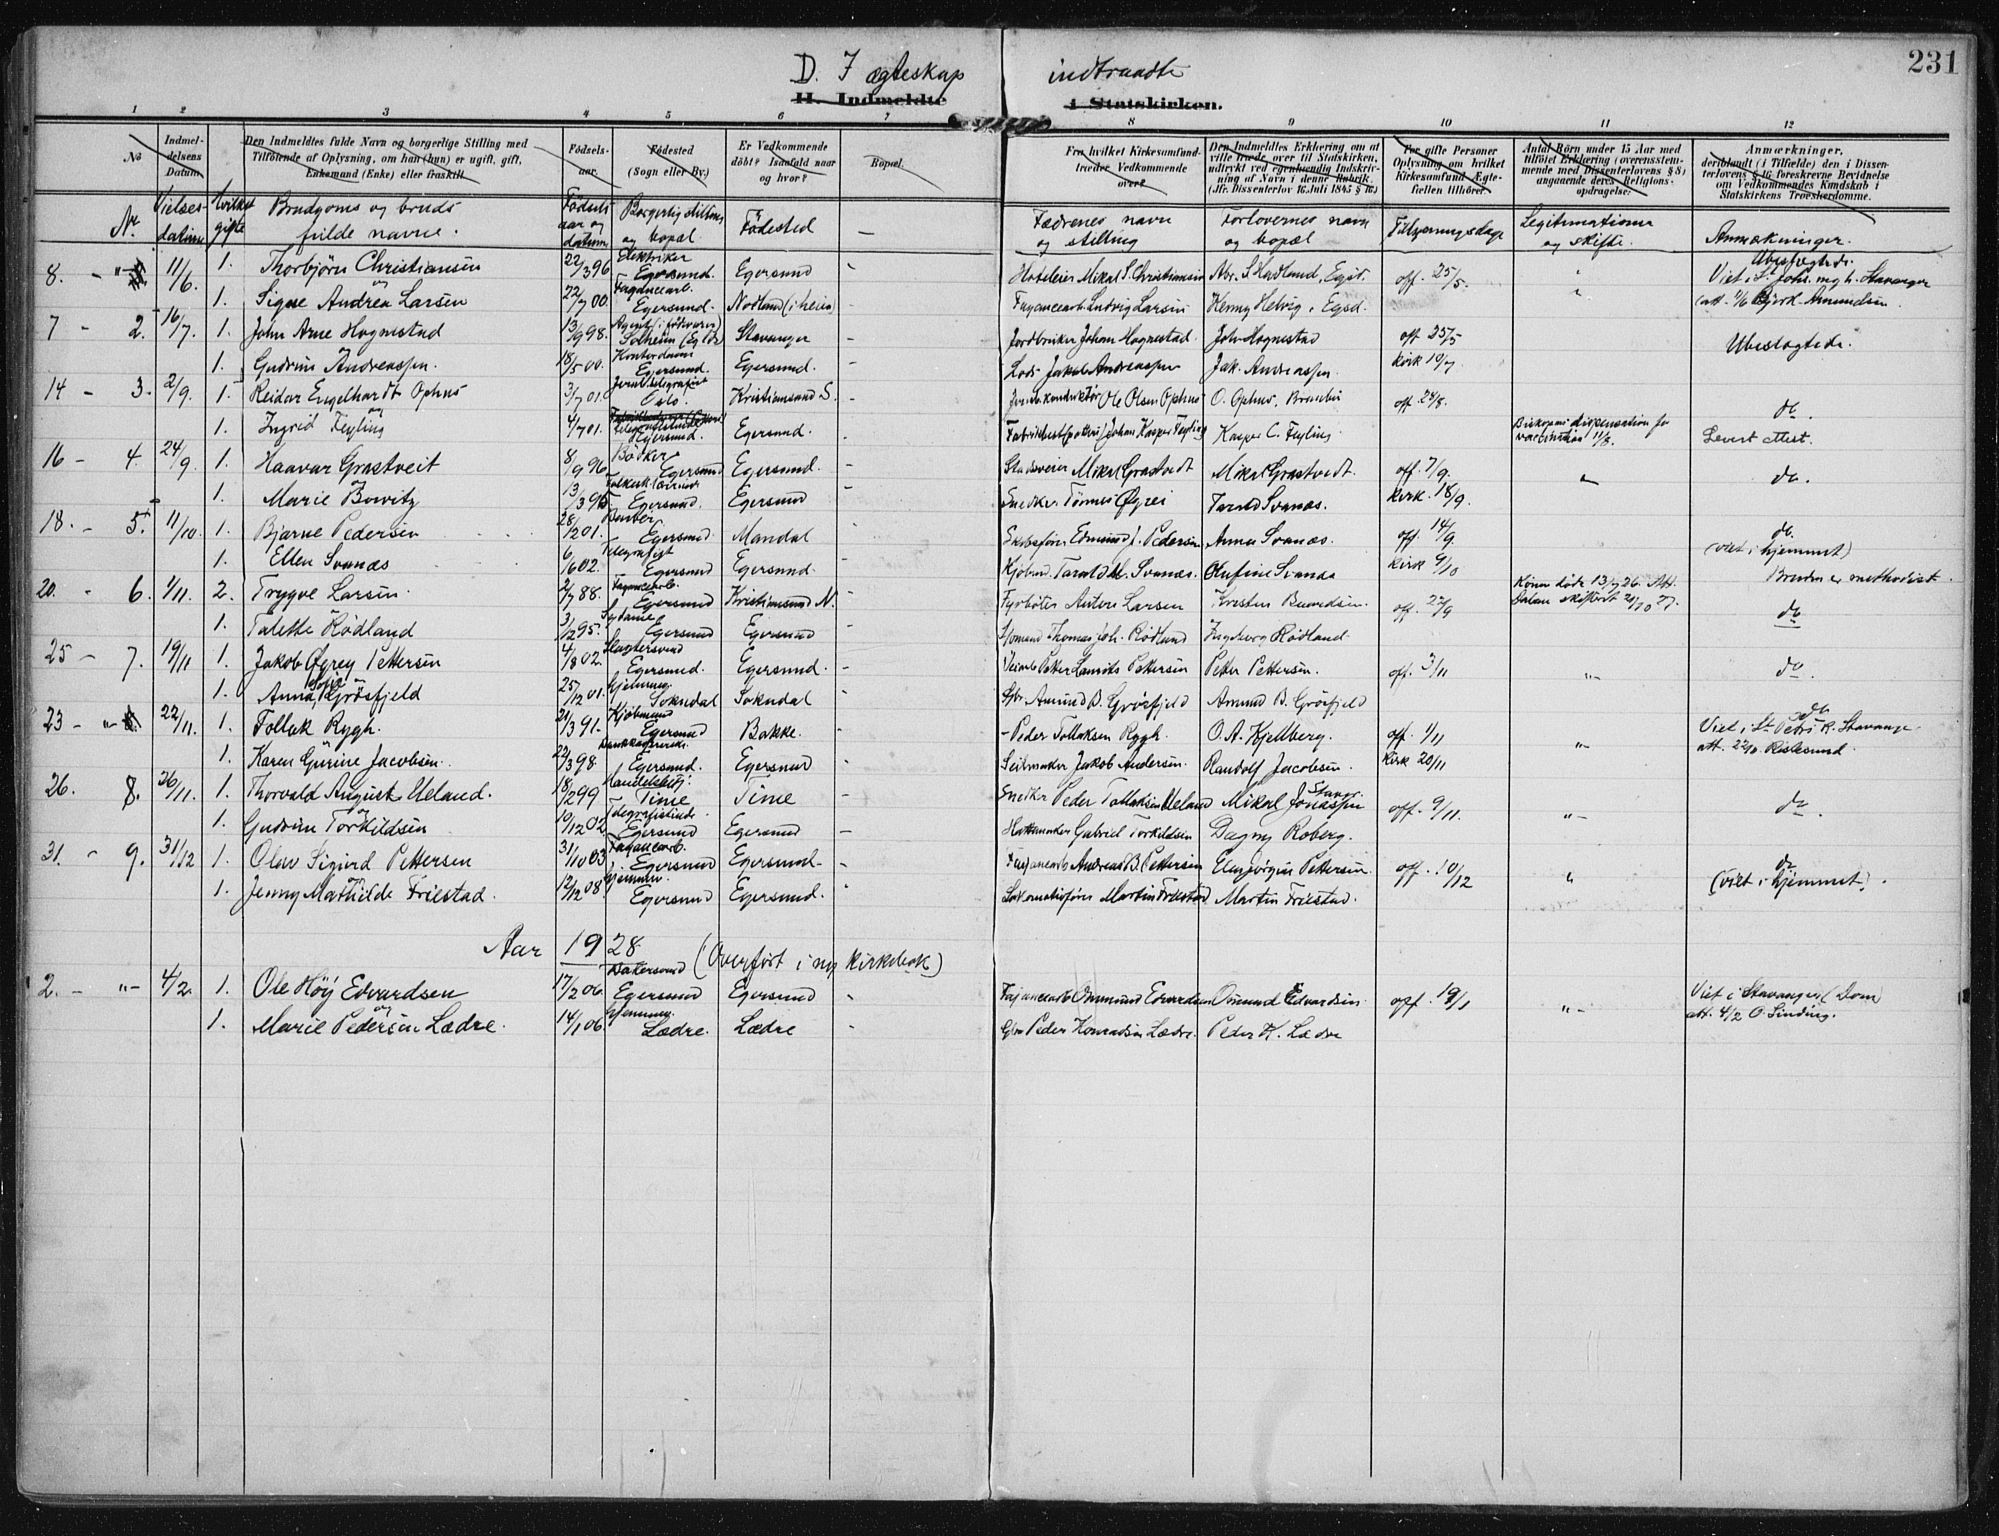 231
D. I ægteskap indtraadte
H. Indmeldte i Statskirken.
1 2 3 4 5 6 7 8 9 10 11 12
No
Indmel-
delsens
Datum.
Den Indmeldtes fulde Navn og borgerlige Stilling med
Tilföiende af Oplysning, om han (hun) er ugift, gift,
Enkemand (Enke) eller fraskilt.
Födsels-
aar.
Födested
(Sogn eller By.)
Er Vedkommende
döbt? Isaafald naar
og hvor?
Bopæl.
Fra hvilket Kirkesamfund-
træder Vedkommende
over?
Den Indmeldtes Erklæring om at
ville træde over til Statskirken,
udtrykt ved egenhændig Indskriv-
ning af Navn i denne Rubrik.
(Jfr. Dissenterlov 16 Juli 1845 § 16.)
For gifte Personer
Oplysning om hvilket
Kirkesamfund Ægte-
fællen tilhörer.
Antal Börn under 15 Aar med
tilföiet Erklæring (overensstem-
mende med Dissenterlovens § 8)
angaaende deres Religions-
opdragelse.
Anmærkninger,
deriblandt (i Tilfælde) den i Dissen-
terlovens § 16 foreskrevne Bevidnelse
om Vedkommendes Kundskab i
Statskirkens Troesbekjendelse.
Nr.
Vielses-
datum
Hvilket
gifte
Brudgoms og bruds
fulde navne.
Födsels
aar og
datum
Borgerlig stilling
og bopæl
Födested
Fædrenes navn
og stilling
Forlovernes navn
og bopæl
Tillysningsdage
Legitimationer
og skifte.
Anmerkninger.
8. - " 11/6. 1. Thorbjörn Christiansen 22/3 96 Elektriker Egersund. Egersund Hoteleier Mikal S. Christiansen Abr. S. Hadland, Egsd. off 25/5. " Ubeslegtede. Viet i St. Joh. mgh. Stavanger
og
1. Signe Andrea Larsen 22/7 00. Fayancearb. Egersund. Nodland (i heien) Fayancearb. Ludvig Larsen Henny Helvig, Egsd. " att. 11/6 Bjark. Amundsen
7 - 2. 16/7. 1. John Arne Hognestad 13/9 98. Agent Stavanger Jordbruker Johan Hognestad. John Hognestad off 25/5 Ubeslegtede.
1. Gudrun Andreassen. 18/5 00. Kontordame Egersund. Egersund. Lods Jakob Andreassen Jak. Andreassen. kirk 10/7
14 - 3. 2/9. 1. Reidar Engelhardt Ophus 3/7 01. Jernb.telegrafist Oslo. Kristiansand S. Jernb.konduktör Ole Olsen Ophus O. Ophus, off 24/8. do.
og
1. Ingrid Feyling 4/7 01. Egersund. Egersund. Johan Kasper Feyling Kasper C. Feyling. dispensation for vaccination 11/8. Levert attest.
16 - 4. 24/9. 1. Haavar Grastveit 8/9 96 Bödker Egersund Egersund. Mikal Grastvedt Mikal Grastvedt. off. 7/9. " do.
1. Marie Bowitz 13/3 95 Egersund. Egersund Snedker Tönnes Øgrei Tarald Svanæs. Kirk. 18/9.
18. - 5. 11/10. 1. Bjarne Pedersen 28/2 01. Barber Egersund Mandal Skibsförer Edmund J. Pedersen Anna Svanæs. off 14/9. do. (viet i hjemmet)
1. Ellen Svanæs 6/6 02. Telegrafist Egersund Egersund. Kjöbmd. Tarald M. Svanæs. Olufine Svanæs Kirk 9/10
20. - 6. 1/11. 2. Trygve Larsen. 2/7 88. Fayancearb. Egersund Kristiansund N. Fyrböter Anton Larsen off. 22/9 Konen döde 13/7 26. Att. Dalane skifteret 20/10 27. Bruden er methodist. do
1. Talette Rödland 3/12 95. Sydame Egersund Egersund Sjömand Thomas Joh. Rödland Ingeborg Rödland.
25 - 7. 19/11 1. Jakob Øgrey Pettersen 4/8 02. Slagtersvend Egersund. Egersund. Petter Laurits Pettersen Petter Pettersen. off. 3/11 "- do.
1. Anna Sofie Grösfjeld 25/12 01. Hjemmev. Sokndal Sokndal Gbr. Amund B. Grösfjeld Amund B. Grösfjeld
23 - " 22/11. 1. Tollak Rygh. 21/3 91. Kjöbmand Egersund Bakke. Peder Tollaksen Rygh. O. A. Kjellberg. off. 1/11 "- do Viet i St. Petri K. Stavanger
1. Karen Gurine Jacobsen. 22/3 98. Egersund. Egersund Seilmaker Jakob Andersen. Randolf Jacobsen Kirk 20/11 att. 22/11.
26. 8. 26/11. 1. Thorvald August Ueland. 18/2 99 Handelsbetj. Time Time Snedker Peder Tollaksen Ueland Mikal Jonassen Stavgr. off. 9/11. "- do.
og
1. Gudrun Torkildsen 10/12 02. Telegrafistinde Egersund Egersund Hattemaker Gabriel Torkildsen Dagny Roberg.
31. - 9. 31/12 1. Olav Sigurd Pettersen 31/10 03. Fayancearb. Egersund Egersund- Fayancearb. Andreas B. Pettersen Pettersen. off. 10/12 " do (viet i hjemmet).
1. Jenny Mathilde Friestad. 12/2 08. Hjemmev. Egersund Egersund. Martin Friestad Martin Friestad.
Aar 1928. (Overfört i ny kirkebok)
2. - "- 4/2. 1. Ole Höy Edvardsen 17/2 06. Bakersvend Egersund Egersund Fayancearb. Ommund Edvardsen Ommund Edvardsen off. 19/1 "- Viet i Stavanger (Dom)
og
1. Marie Pedersen Lædre. 14/1 06. Hjemmev. Lædre. Lædre Gbr. Peder Konradsen Lædre. Peder K. Lædre att. 4/2 O. Sinding.